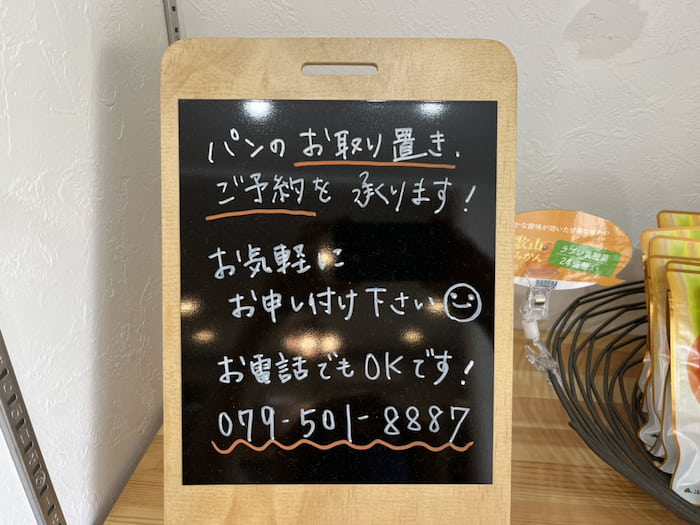 パンのお取り置き、
ご予約を承くります!
お気軽に
お申し付け下さい
お電話でもOKです!
079-501-8887
歌山
みかん
ラブレ乳酸菌